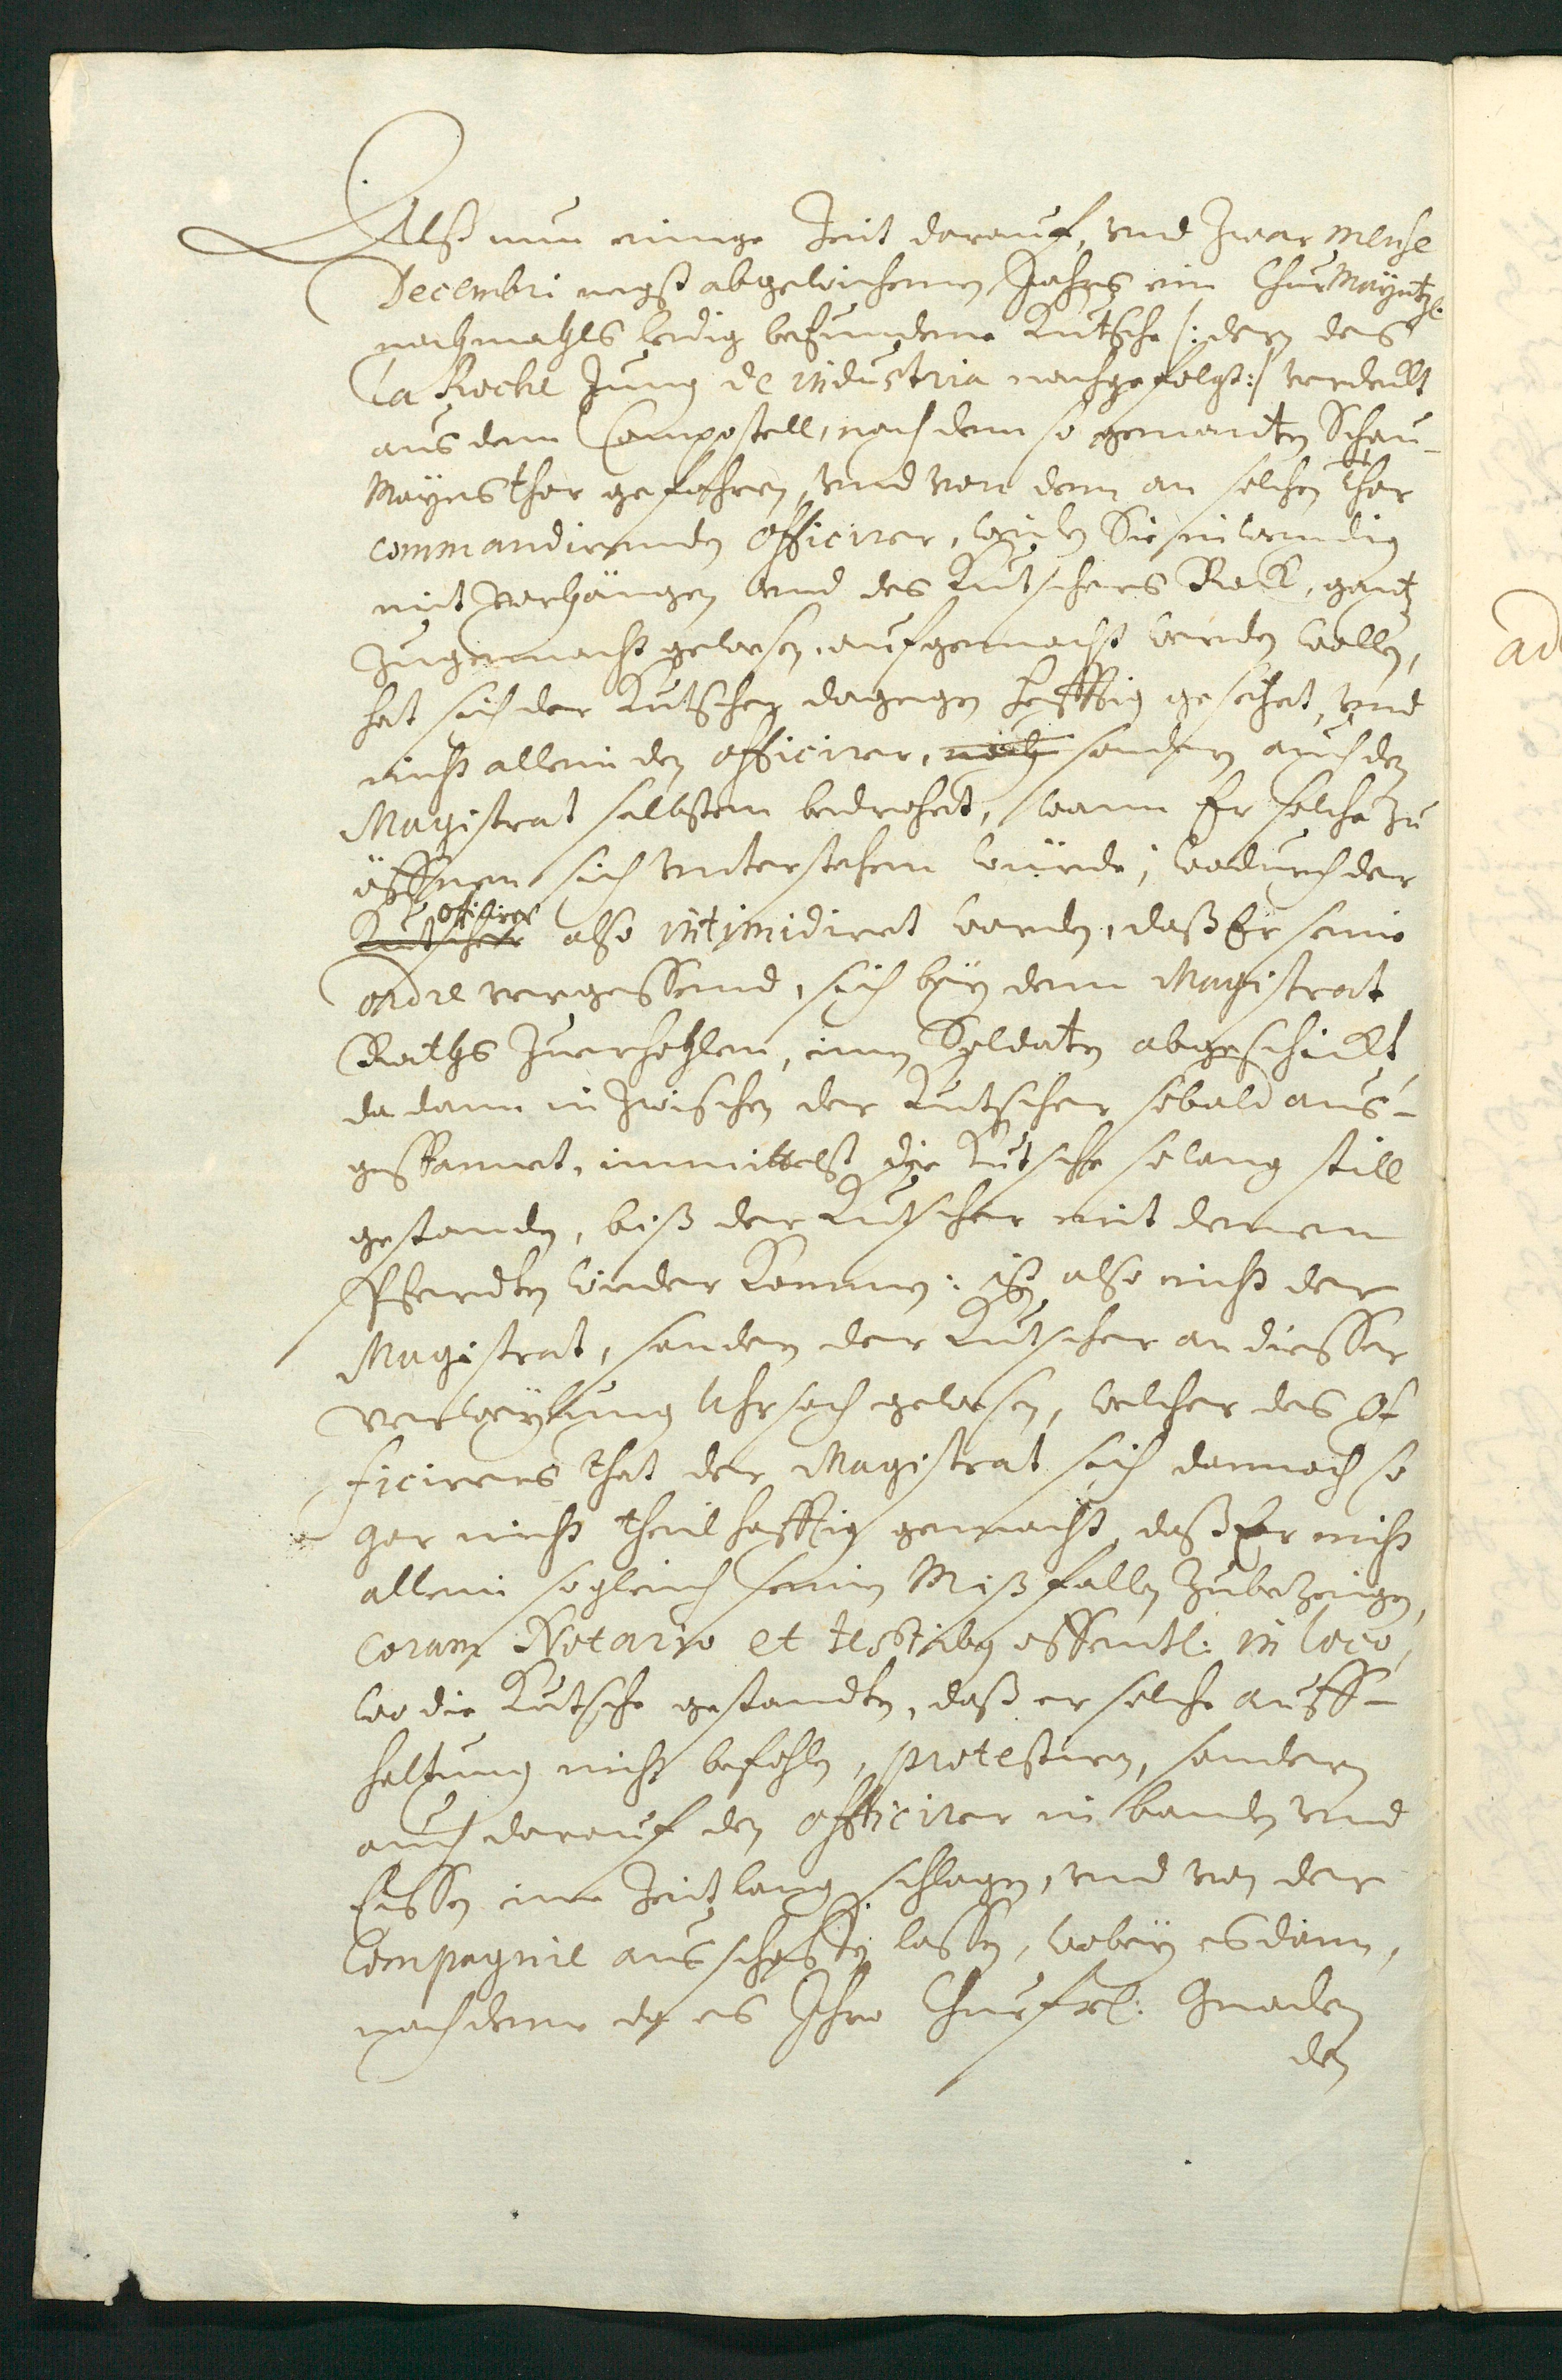 Alß nun einige Zeit darauf, vnd zwar mense
Decembri negst abgewichenen Jahrs ein ChurMayntzl.
nachmahls ledig befundene Kutsche /: deren des
la Roche Jung de industria nachgefolgt :/ verdeckt
aus dem Compostell, nach dem so genanten Schau-
Mayns thor gefahren, vnd von dem an solchen Thor
commandirenden Officirer, weilen Sie inwendig
mit vorhängen vnd des Kutschers Rock, gantz
zugemacht gewesen, aufgemacht werden wollen,
hat sich der Kutscher dagegen hefftig gesetzet, vnd
nicht allein den Officirer, noch sondern auch den
Magistrat selbsten bedrohet, wann Er solche zu
öffnen sich vnterstehen würde; wodurch der
officirer
Kutscher also intimidirt worden, daß Er seine
ordre vergessend, sich bey dem Magistrat
Raths zuerhohlen, einen Soldaten abgeschickt,
da dann in zwischen der Kutscher sobald aus-
gespannet, immittelst die Kutsche so lang still
gestanden, biß der Kutscher mit denen
Pferdten wieder kommen: ist also nicht der
Magistrat, sondern der Kutscher an diesser
verweylung Uhrsach gewesen, welcher des Of
ficirers that der Magistrat sich dannoch so
gar nicht theilhafftig gemacht, daß Er nicht
allein sogleich seinen Mißfallen zubezeigen,
coram Notario et testibus offentl: in loco,
wo die Kutsche gestandten, daß er solche auff-
haltung nicht befohlen, protestiren, sondern
auch darauf den Officirer in banden vnd
Eissen eine Zeitlang schlagen, vnd von der
Compagnie aus schaffen lassen, wobey es dann,
nachdeme da es Ihro Churfrl: Gnaden
den
ad